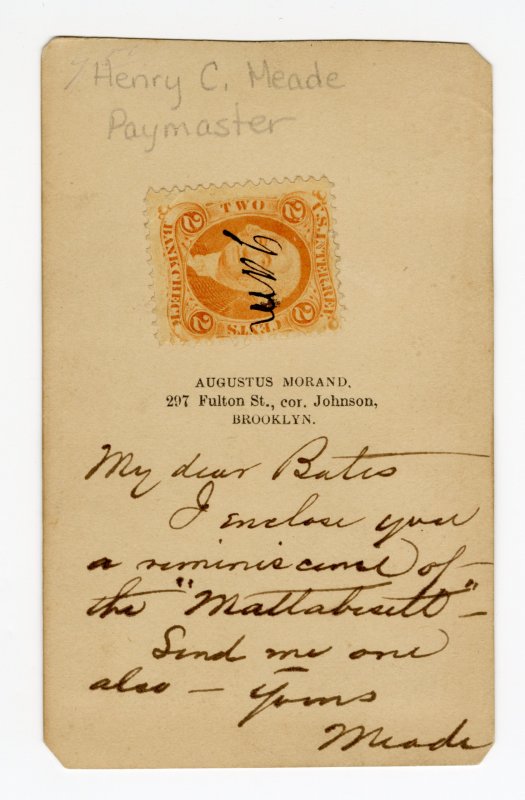 Henry C. Meade
Paymaster
TWO
U.S. INTER. REV.
BANK CHECK
CENTS
2
2
2
2
AUGUSTUS MORAND,
297 Fulton St., cor. Johnson,
BROOKLYN.
My dear Bates
I enclose you
a reminiscense of
the "Mattabesett" –
Send me one
also – Yours
Meade